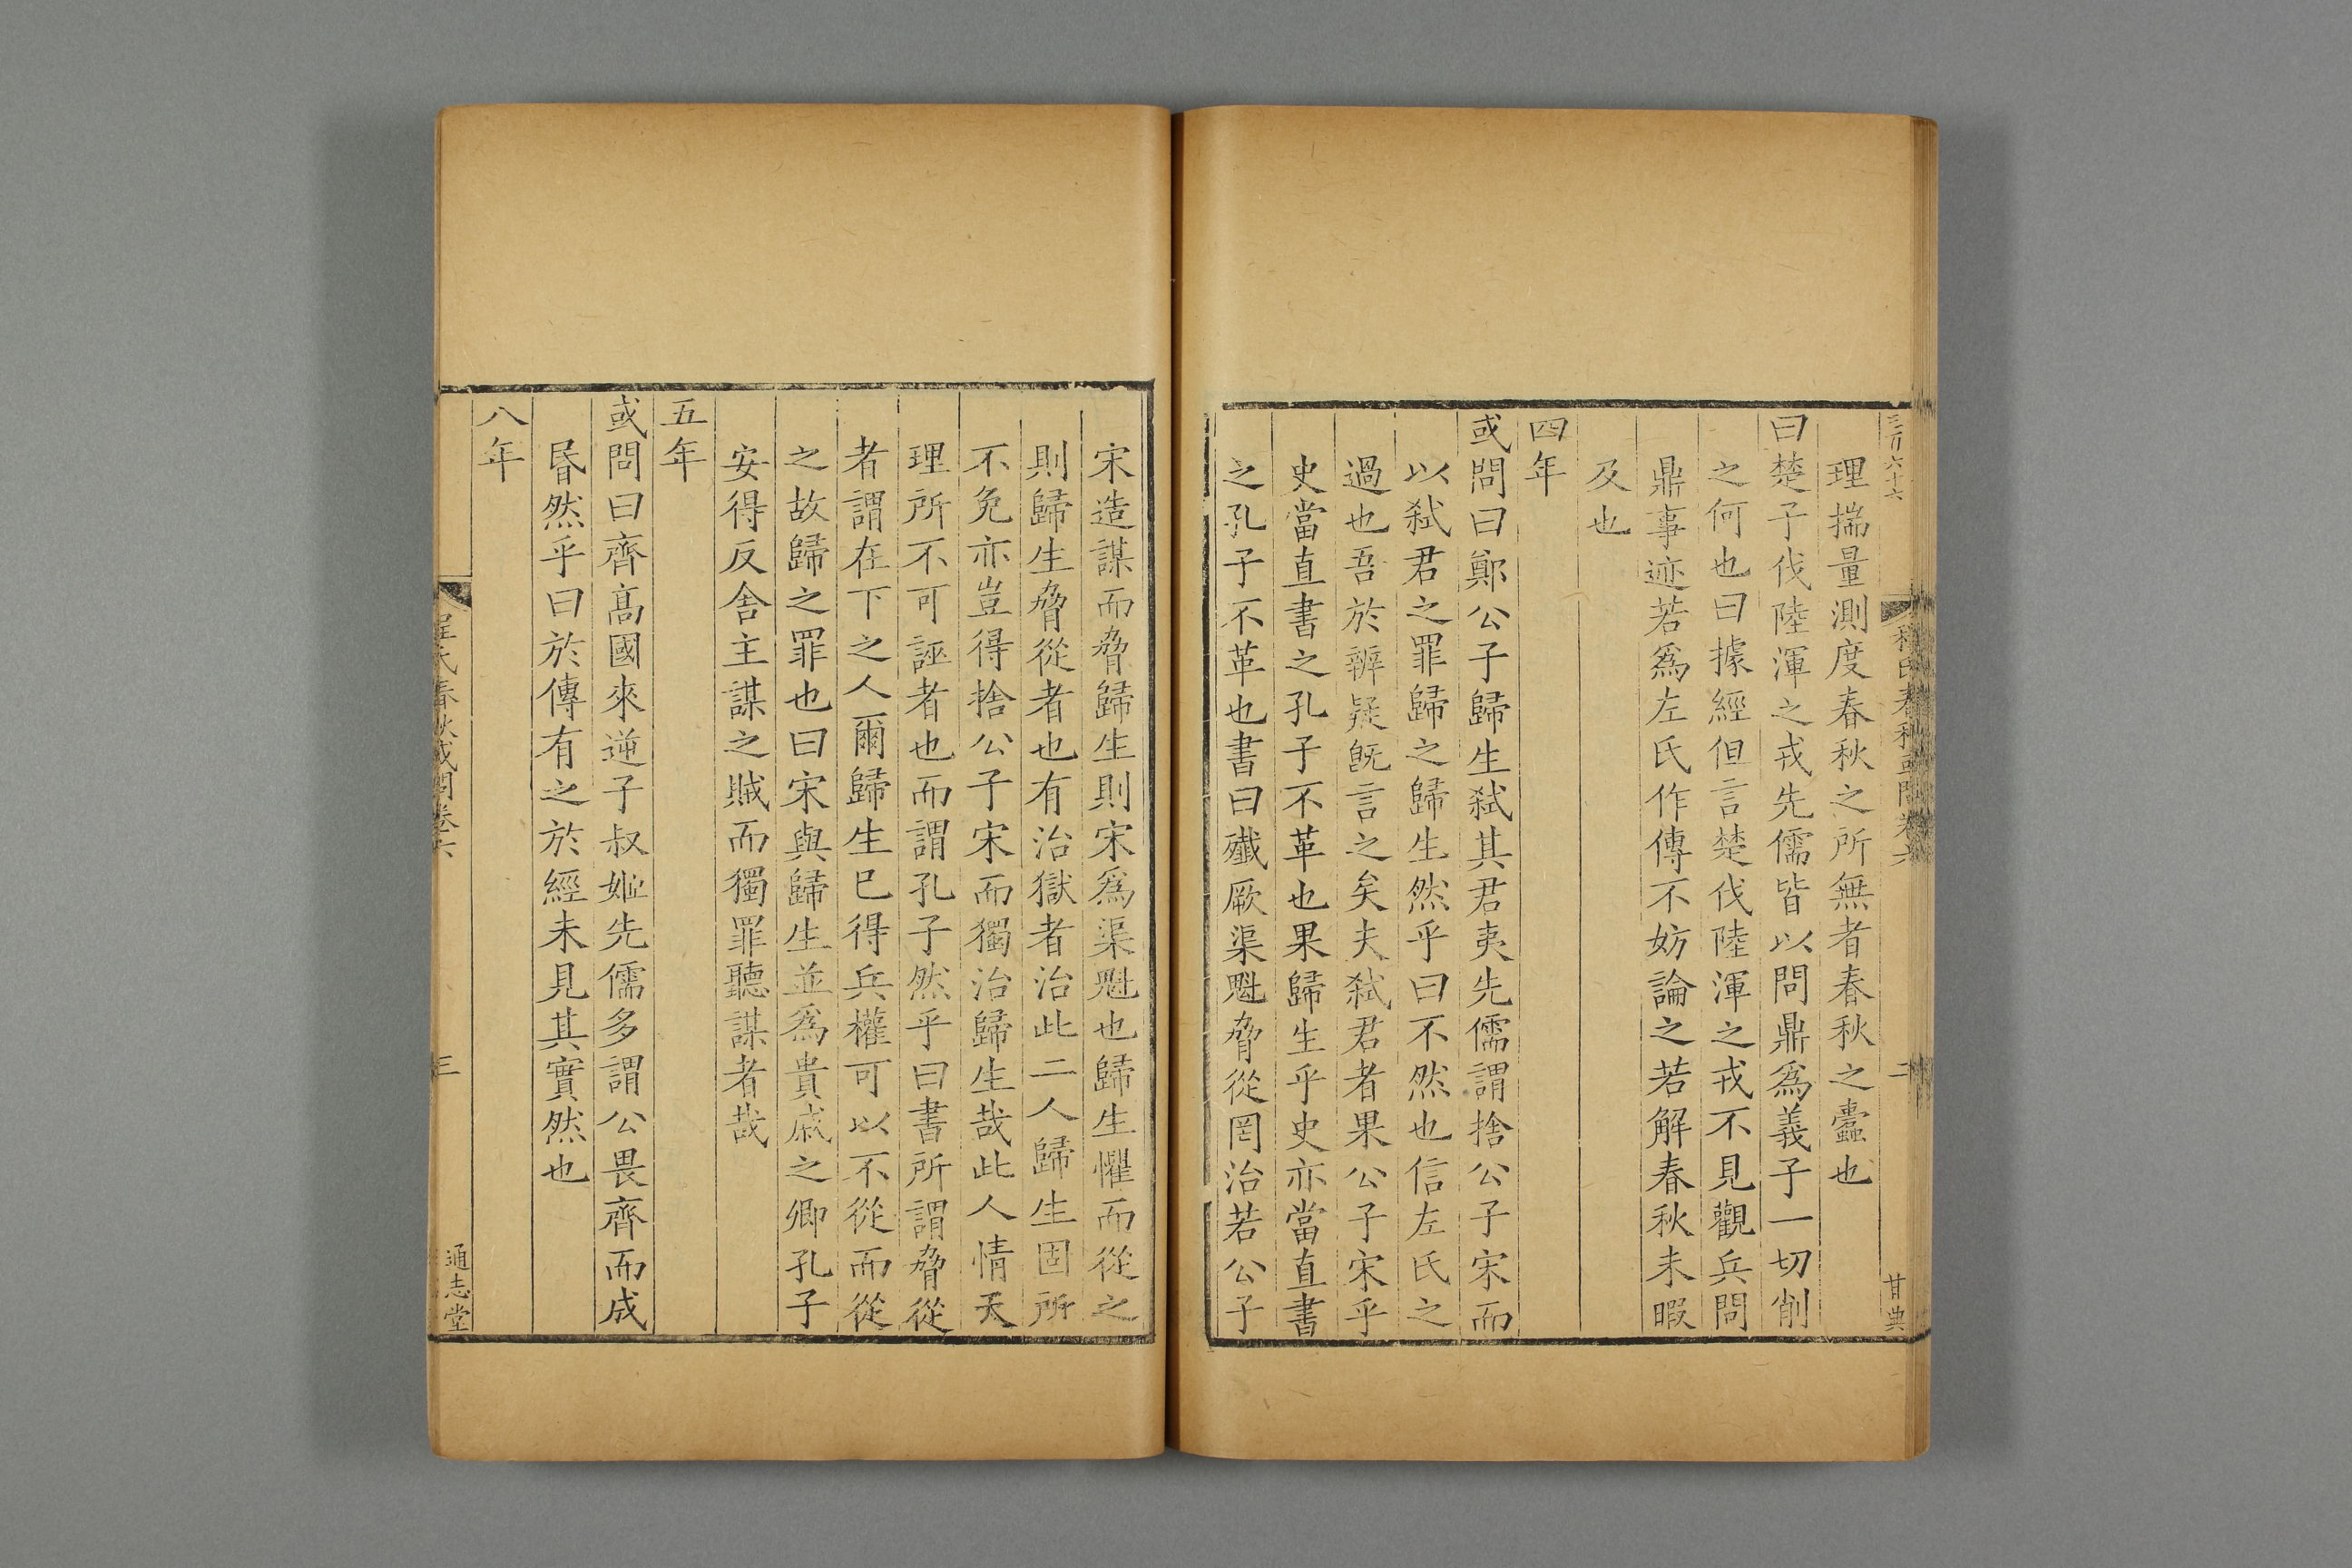 三百六十六
程氏春秋或問卷六
二
甘典
理揣量測度春秋之所無者春秋之蠹也
曰楚子伐陸渾之戎先儒皆以問鼎爲義子一切削
之何也曰據經但言楚伐陸渾之戎不見觀兵問
鼎事迹若爲左氏作傳不妨論之若解春秋未暇
及也
四年
或問曰鄭公子歸生弑其君夷先儒謂捨公子宋而
以弑君之罪歸之歸生然乎曰不然也信左氏之
過也吾於辨疑旣言之矣夫弑君者果公子宋乎
史當直書之孔子不革也果歸生乎史亦當直書
之孔子不革也書曰殲厥渠魁脅從罔治若公子
宋造謀而脅歸生則宋爲渠魁也歸生懼而從之
則歸生脅從者也有治獄者治此二人歸生固所
不免亦豈得捨公子宋而獨治歸生哉此人情天
理所不可誣者也而謂孔子然乎曰書所謂脅從
者謂在下之人爾歸生已得兵權可以不從而從
之故歸之罪也曰宋與歸生並爲貴戚之卿孔子
安得反舍主謀之賊而獨罪聽謀者哉
五年
或問曰齊高國來逆子叔姬先儒多謂公畏齊而成
昬然乎曰於傳有之於經未見其實然也
八年
程氏春秋或問卷六
三
通志堂